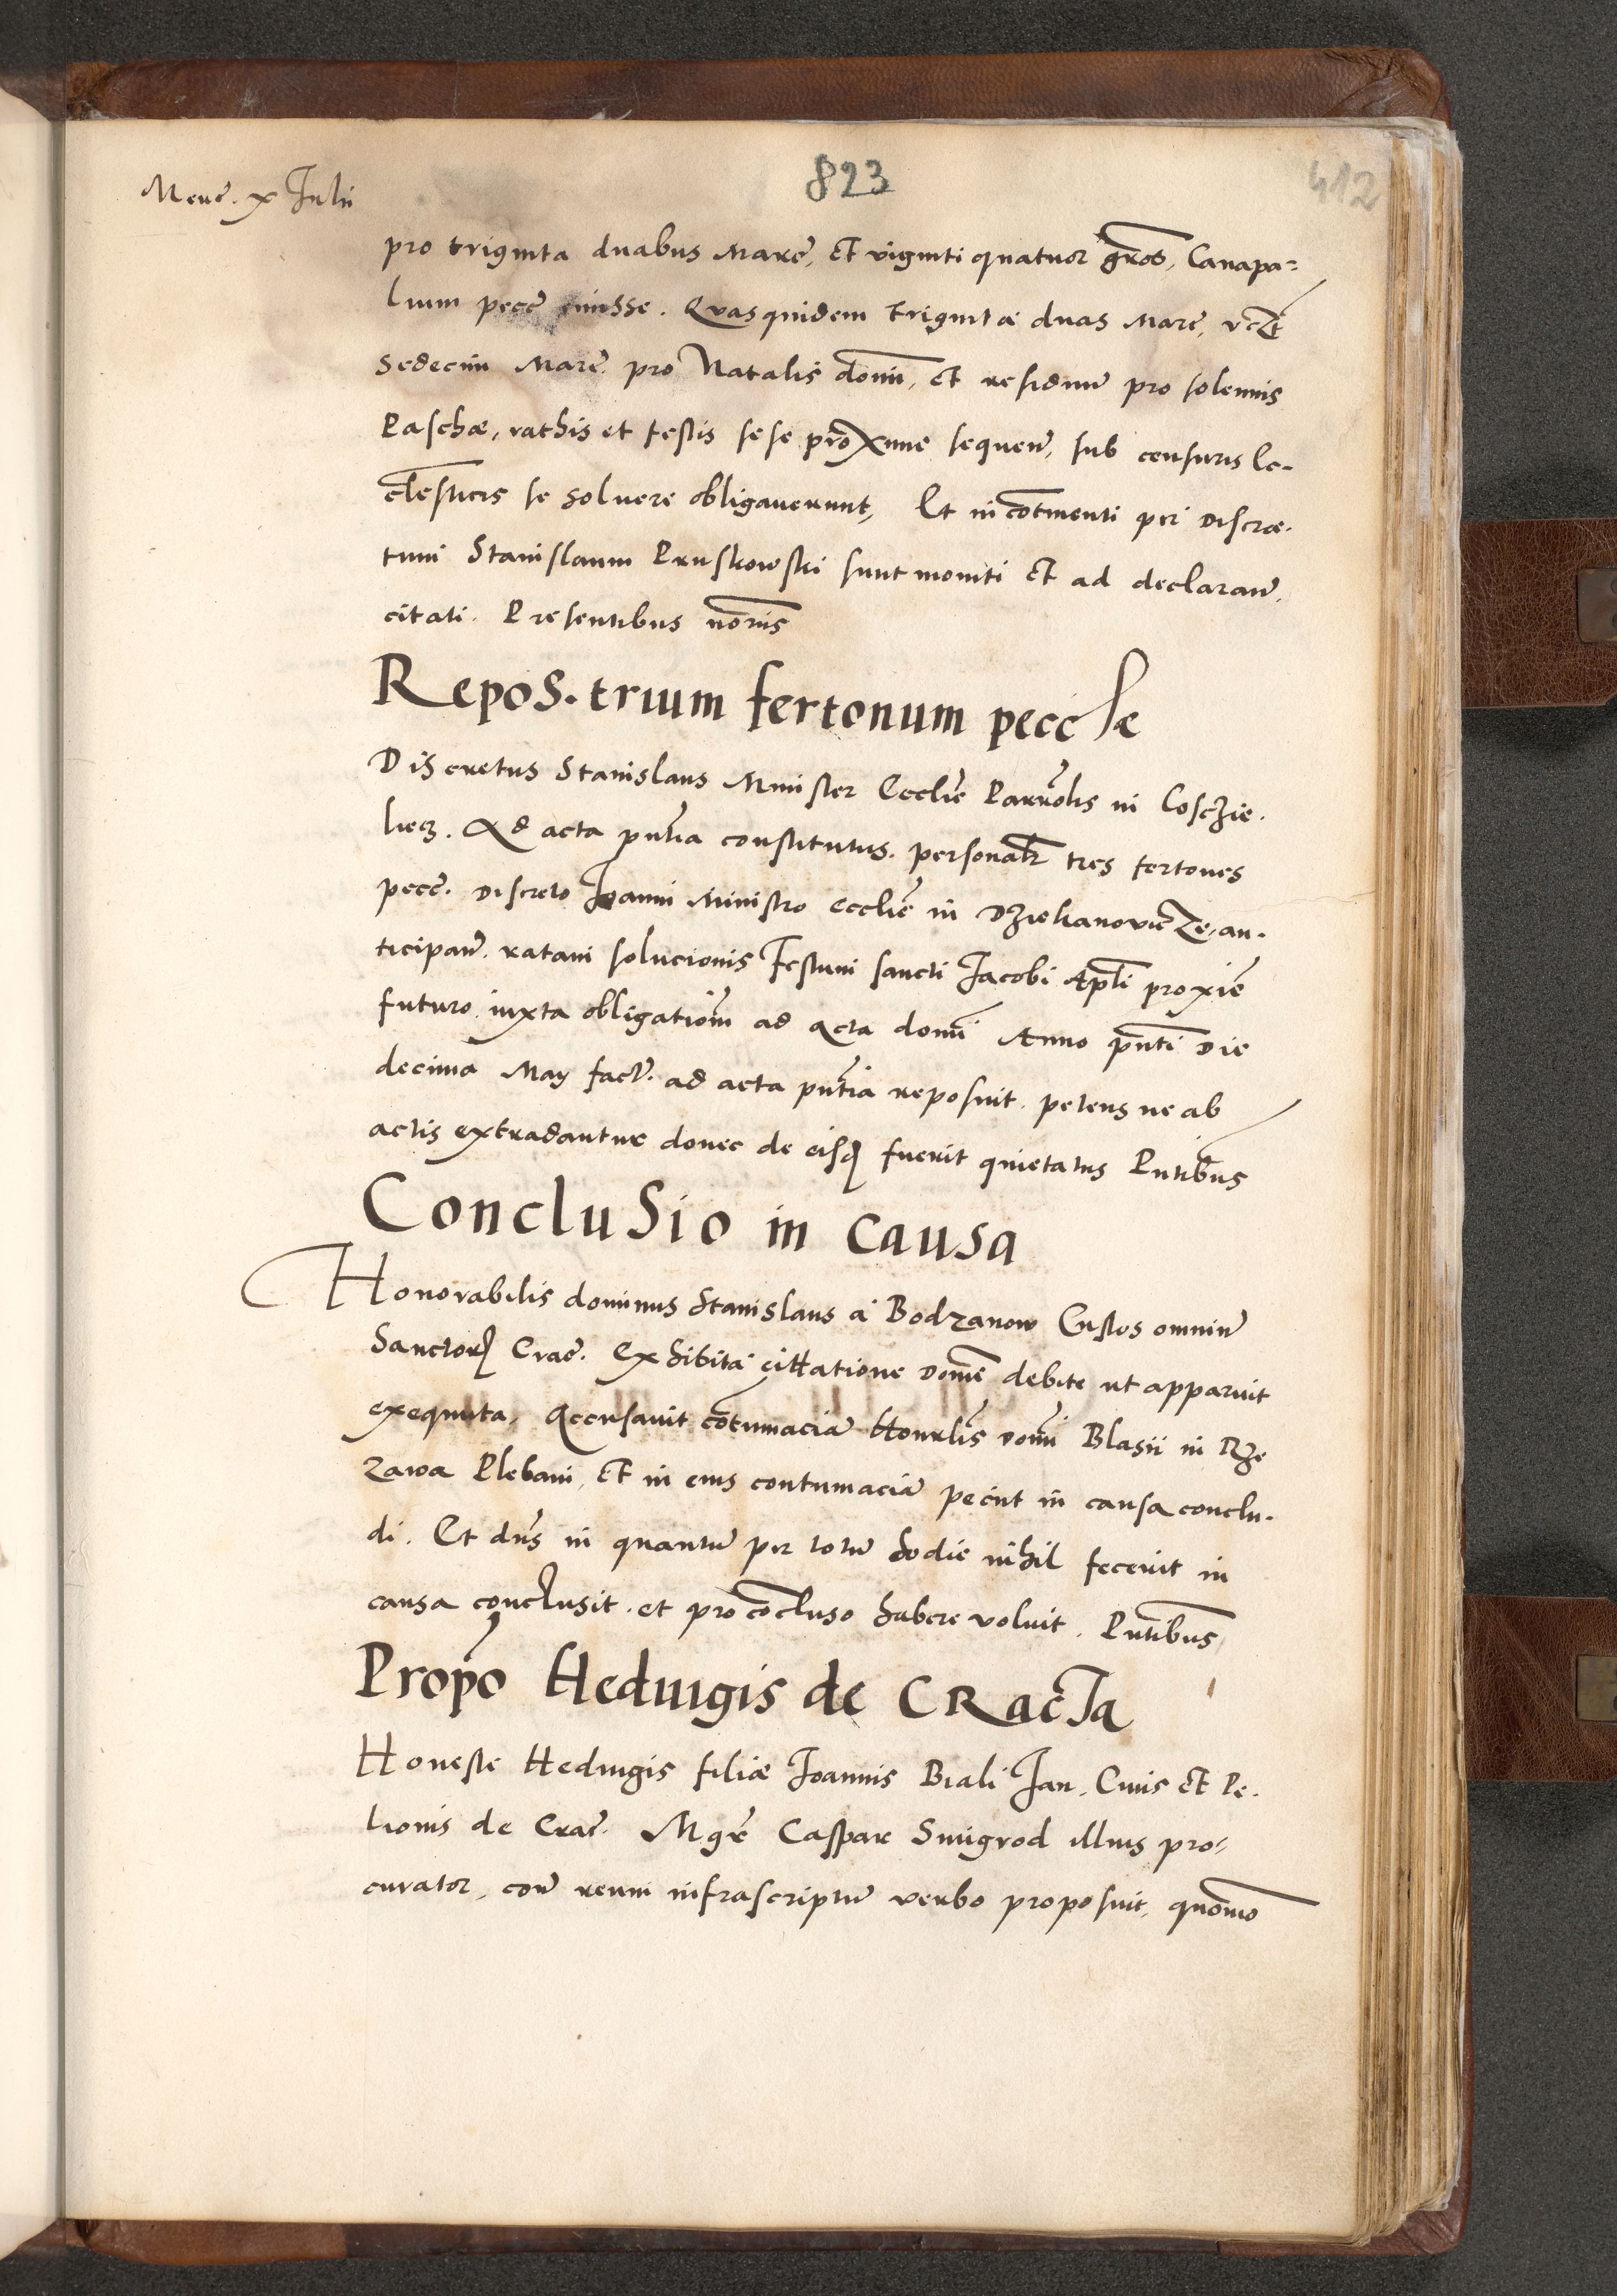 823
412
Merc̄. x Julii
pro triginta duabus Marc̄, et viginti quatuor gros̄, Canapa=
lium pecc̄ emisse. Quas quidem triginta duas Marc̄, vcꝫt
sedecim Marc̄. pro Natalis domi̅, et residuu̅ pro solemnis
Paschæ, rathis et festis sese proxime sequen̄, sub censuris Ec-
cl̅esticis se soluere obligauerunt, Et in co̅tinenti per Discræ-
tum Stanislaum Pruskowski sunt moniti et ad declaran̄.
citati. Presentibus no̅rijs
Repos. trium fertonum pecc̄ Ie
Discretus Stanislaus Minister Eccli̅e Parro̅lis in Coschie-
liecz. Ad acta pn̅tia constitutus. personalr̅ tres fertones
pecc̄. Discreto Joanni Ministro eccli̅e in Dziekanovicze, an-
ticipan̄. ratam solucionis Festum sancti Jacobi Apl̅i proxi̅e
futuro. iuxta obligatio̅m ad acta domi̅ Anno pn̅ti Die
decima May fact̄. ad acta pn̅tia reposuit. petens ne ab
actis extradantur donec de eisdꝫ fuerit quietatus Pn̅tibus
Conclusio in causa
Honorabilis dominus Stanislaus a Bodzanow Custos omniu̅
Sanctorꝫ Crac̄. Exhibita cittatione Dom̅e debite ut apparuit
exequuta, Accusauit co̅tumacia̅ Honrl̅is Domi̅ Blasii in Rze
zawa Plebani, et in eius contumacia̅ peciit in causa conclu-
di. Et dn̅s in quantu̅ per totu̅ hodie nihil fecerit in
causa conclusit. et pro co̅cluso habere voluit. Pn̅tibus
Propo̅ Hedwigis de Crac̄ Ia
Honeste Hedwigis filiæ Joannis Biali Jan. Ciuis et Pe-
lionis de Crac̄. Mg̅r Caspar Smigrod illius pro-
curator, con̄ reum infrascriptu̅ verbo proposuit, quo̅mo